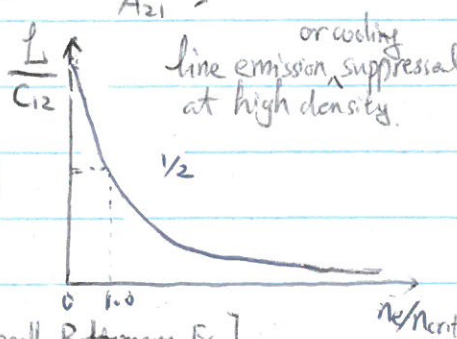 A21
L/C12
or cooling
line emission ^ suppressed
at high density.
1/2
0 1.0
ne/ncrit
Eq]